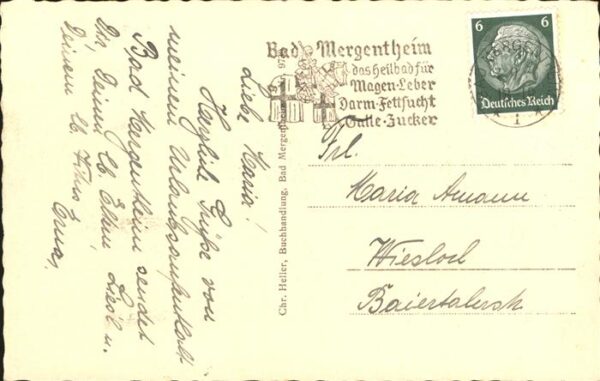 Liebe Maria!
Herzliche Grüße von
meinem Urlaubsaufenthalt
Bad Mergentheim sendet
Dir, Deinen lb. Eltern, Liesl u.
Deinem lb.
Bad Mergentheim
das Heilbad für
Magen-Leber
Darm-Fettsucht
Galle-Zucker
6 6
Deutsches Reich
Chr. Heller, Buchhandlung, Bad Mergentheim
Frl.
Maria Amann
Wiesloch
Baiertalerstr